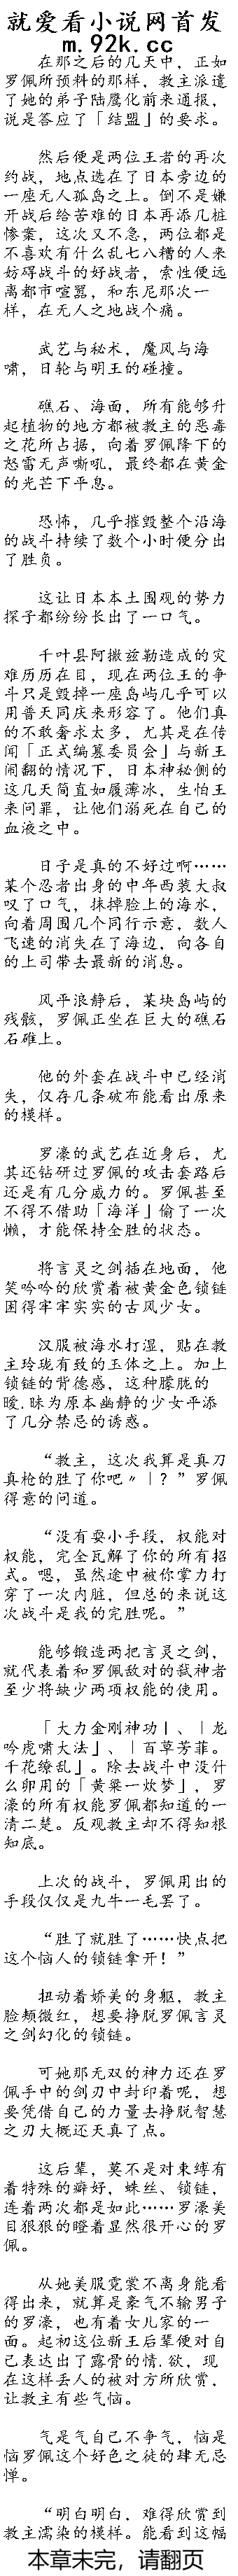 就爱看小说网首发
m.92k.cc
在那之后的几天中，正如
罗佩所预料的那样，教主派遣
了她的弟子陆鹰化前来通报，
说是答应了「结盟」的要求。
然后便是两位王者的再次
约战，地点选在了日本旁边的
一座无人孤岛之上。倒不是嫌
开战后给苦难的日本再添几桩
惨案，这次又不急，两位都是
不喜欢有什么乱七八糟的人来
妨碍战斗的好战者，索性便远
离都市喧嚣，和东尼那次一
样，在无人之地战个痛。
武艺与秘术，魔风与海
啸，日轮与明王的碰撞。
礁石、海面，所有能够升
起植物的地方都被教主的恶毒
之花所占据，向着罗佩降下的
怒雷无声嘶吼，最终都在黄金
的光芒下平息。
恐怖，几乎摧毁整个沿海
的战斗持续了数个小时便分出
了胜负。
这让日本本土围观的势力
探子都纷纷长出了一口气。
千叶县阿撒兹勒造成的灾
难历历在目，现在两位王的争
斗只是毁掉一座岛屿几乎可以
用普天同庆来形容了。他们真
的不敢奢求太多，尤其是在传
闻「正式编篡委员会」与新王
闹翻的情况下，日本神秘侧的
这几天简直如履薄冰，生怕王
来问罪，让他们溺死在自己的
血液之中。
日子是真的不好过啊……
某个忍者出身的中年西装大叔
叹了口气，抹掉脸上的海水，
向着周围几个同行示意，数人
飞速的消失在了海边，向各自
的上司带去最新的消息。
风平浪静后，某块岛屿的
残骸，罗佩正坐在巨大的礁石
石碓上。
他的外套在战斗中已经消
失，仅存几条破布能看出原来
的模样。
罗濠的武艺在近身后，尤
其还钻研过罗佩的攻击套路后
还是有几分威力的。罗佩甚至
不得不借助「海洋」偷了一次
懒，才能保持全胜的状态。
将言灵之剑插在地面，他
笑吟吟的欣赏着被黄金色锁链
困得牢牢实实的古风少女。
汉服被海水打湿，贴在教
主玲珑有致的玉体之上。加上
锁链的背德感，这种朦胧的
暧.昧为原本幽静的少女平添
了几分禁忌的诱惑。
“教主，这次我算是真刀
真枪的胜了你吧〃｜？”罗佩
得意的问道。
“没有耍小手段，权能对
权能，完全瓦解了你的所有招
式。嗯，虽然途中被你掌力打
穿了一次内脏，但总的来说这
次战斗是我的完胜呢。”
能够锻造两把言灵之剑，
就代表着和罗佩敌对的弑神者
至少将缺少两项权能的使用。
「大力金刚神功｜、｜龙
吟虎啸大法」、｜百草芳菲。
千花缭乱」。除去战斗中没什
么卵用的「黄粱一炊梦」，罗
濠的所有权能罗佩都知道的一
清二楚。反观教主却不得知根
知底。
上次的战斗，罗佩用出的
手段仅仅是九牛一毛罢了。
“胜了就胜了……快点把
这个恼人的锁链拿开！”
扭动着娇美的身躯，教主
脸颊微红，想要挣脱罗佩言灵
之剑幻化的锁链。
可她那无双的神力还在罗
佩手中的剑刃中封印着呢，想
要凭借自己的力量去挣脱智慧
之刃大概还天真了点。
这后辈，莫不是对束缚有
着特殊的癖好，蛛丝、锁链，
连着两次都是如此……罗濠美
目狠狠的瞪着显然很开心的罗
佩。
从她美服霓裳不离身能看
得出来，就算是豪气不输男子
的罗濠，也有着女儿家的一
面。起初这位新王后辈便对自
己表达出了露骨的情.欲，现
在这样丢人的被对方所欣赏，
让教主有些气恼。
气是气自己不争气，恼是
恼罗佩这个好色之徒的肆无忌
惮。
“明白明白，难得欣赏到
教主濡染的模样。能看到这幅
本章未完，请翻页